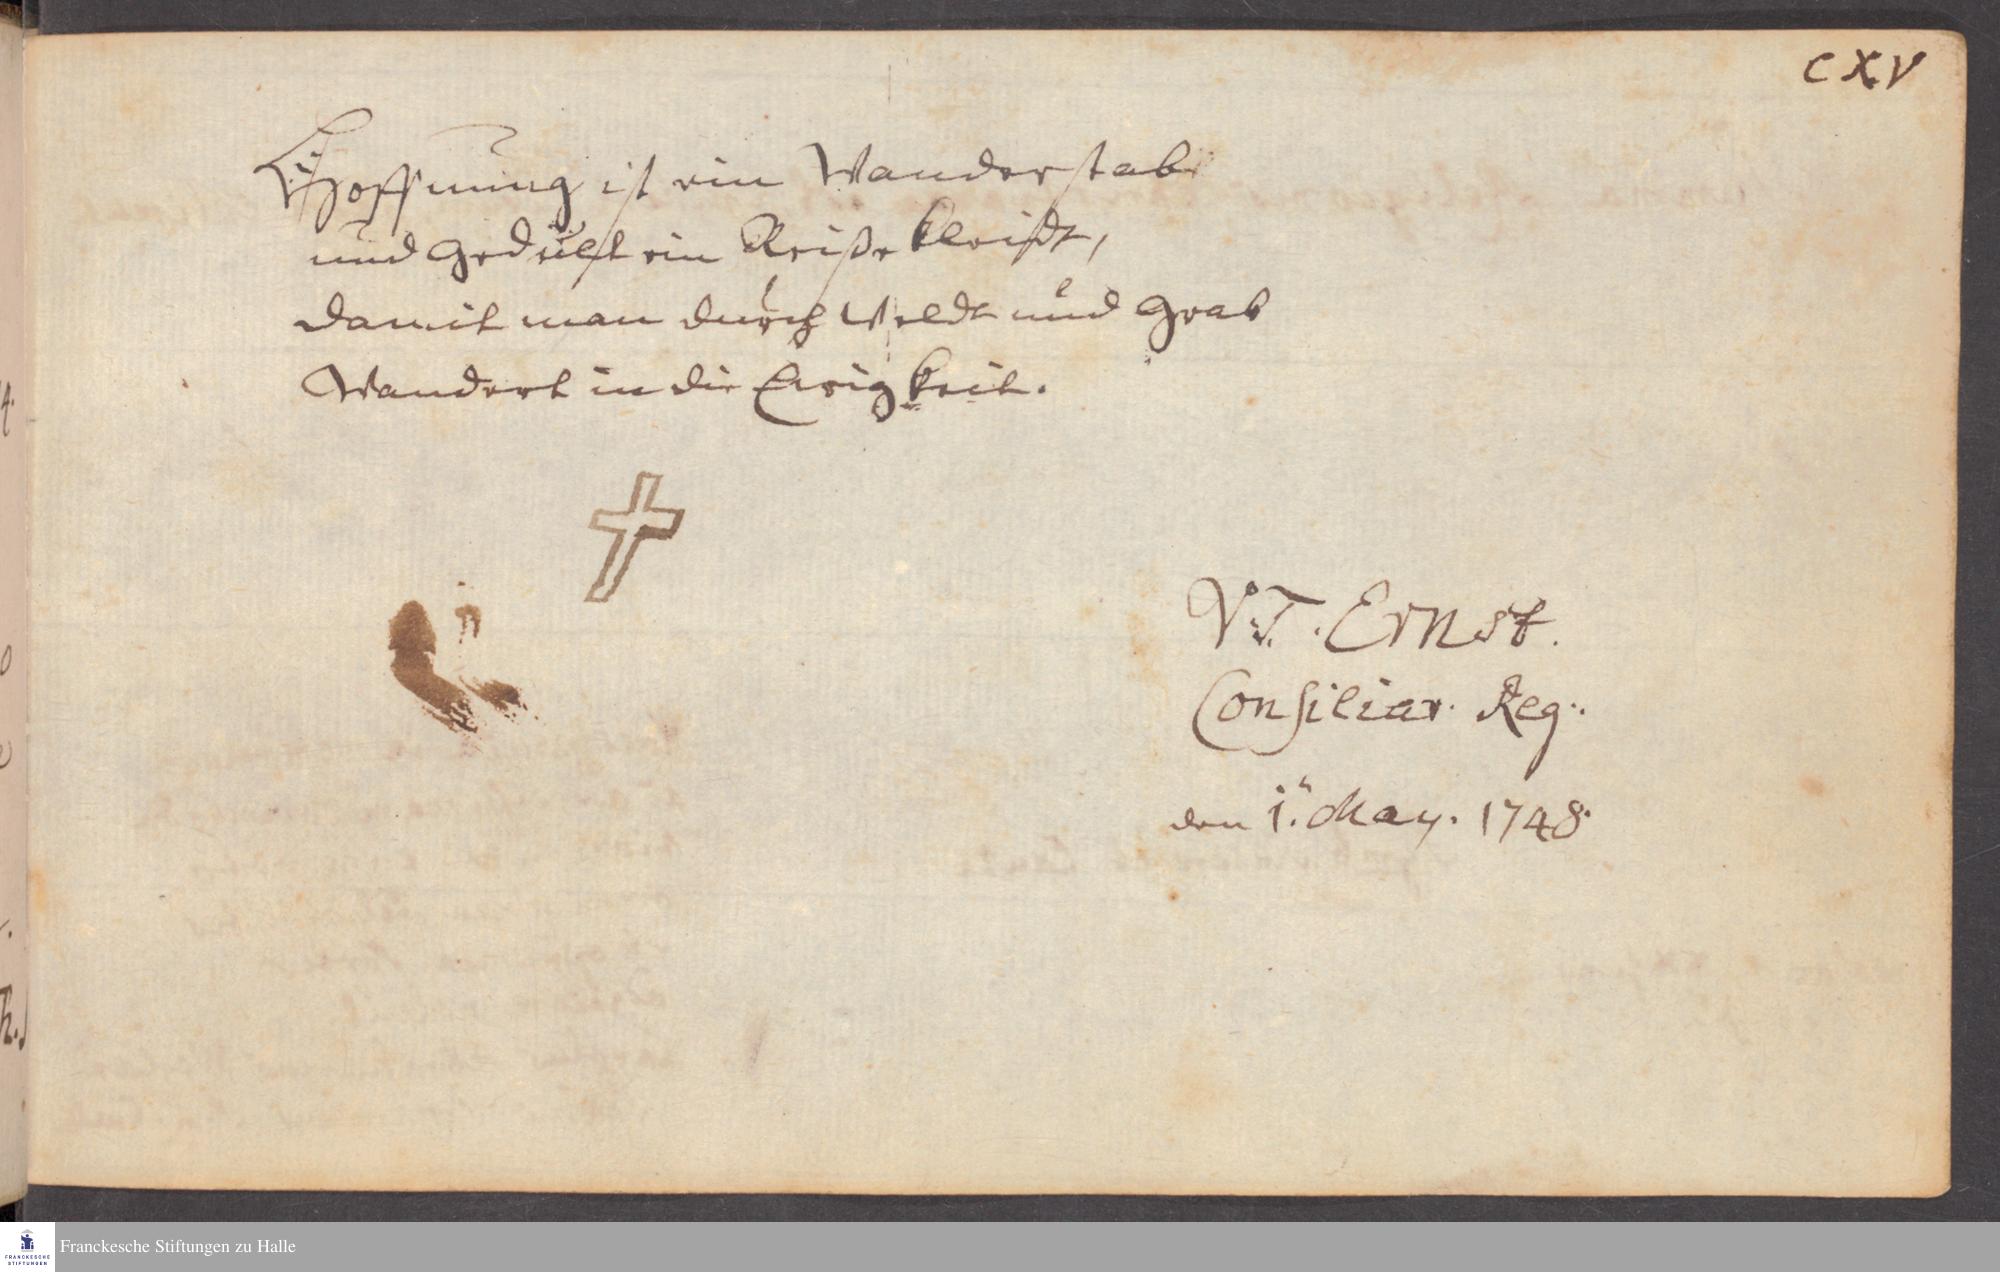 CXV
Hoffnung ist ein Wanderstab
und Gedult ein Reißekleidt,
damit man durch Weldt und Grab
Wandert in die Ewigkeit.
V. T. Ernst.
Consiliar. Reg:.
den 1. May. 1748.
Franckesche Stiftungen zu Halle
FRANCKESCHE
STIFTUNGEN